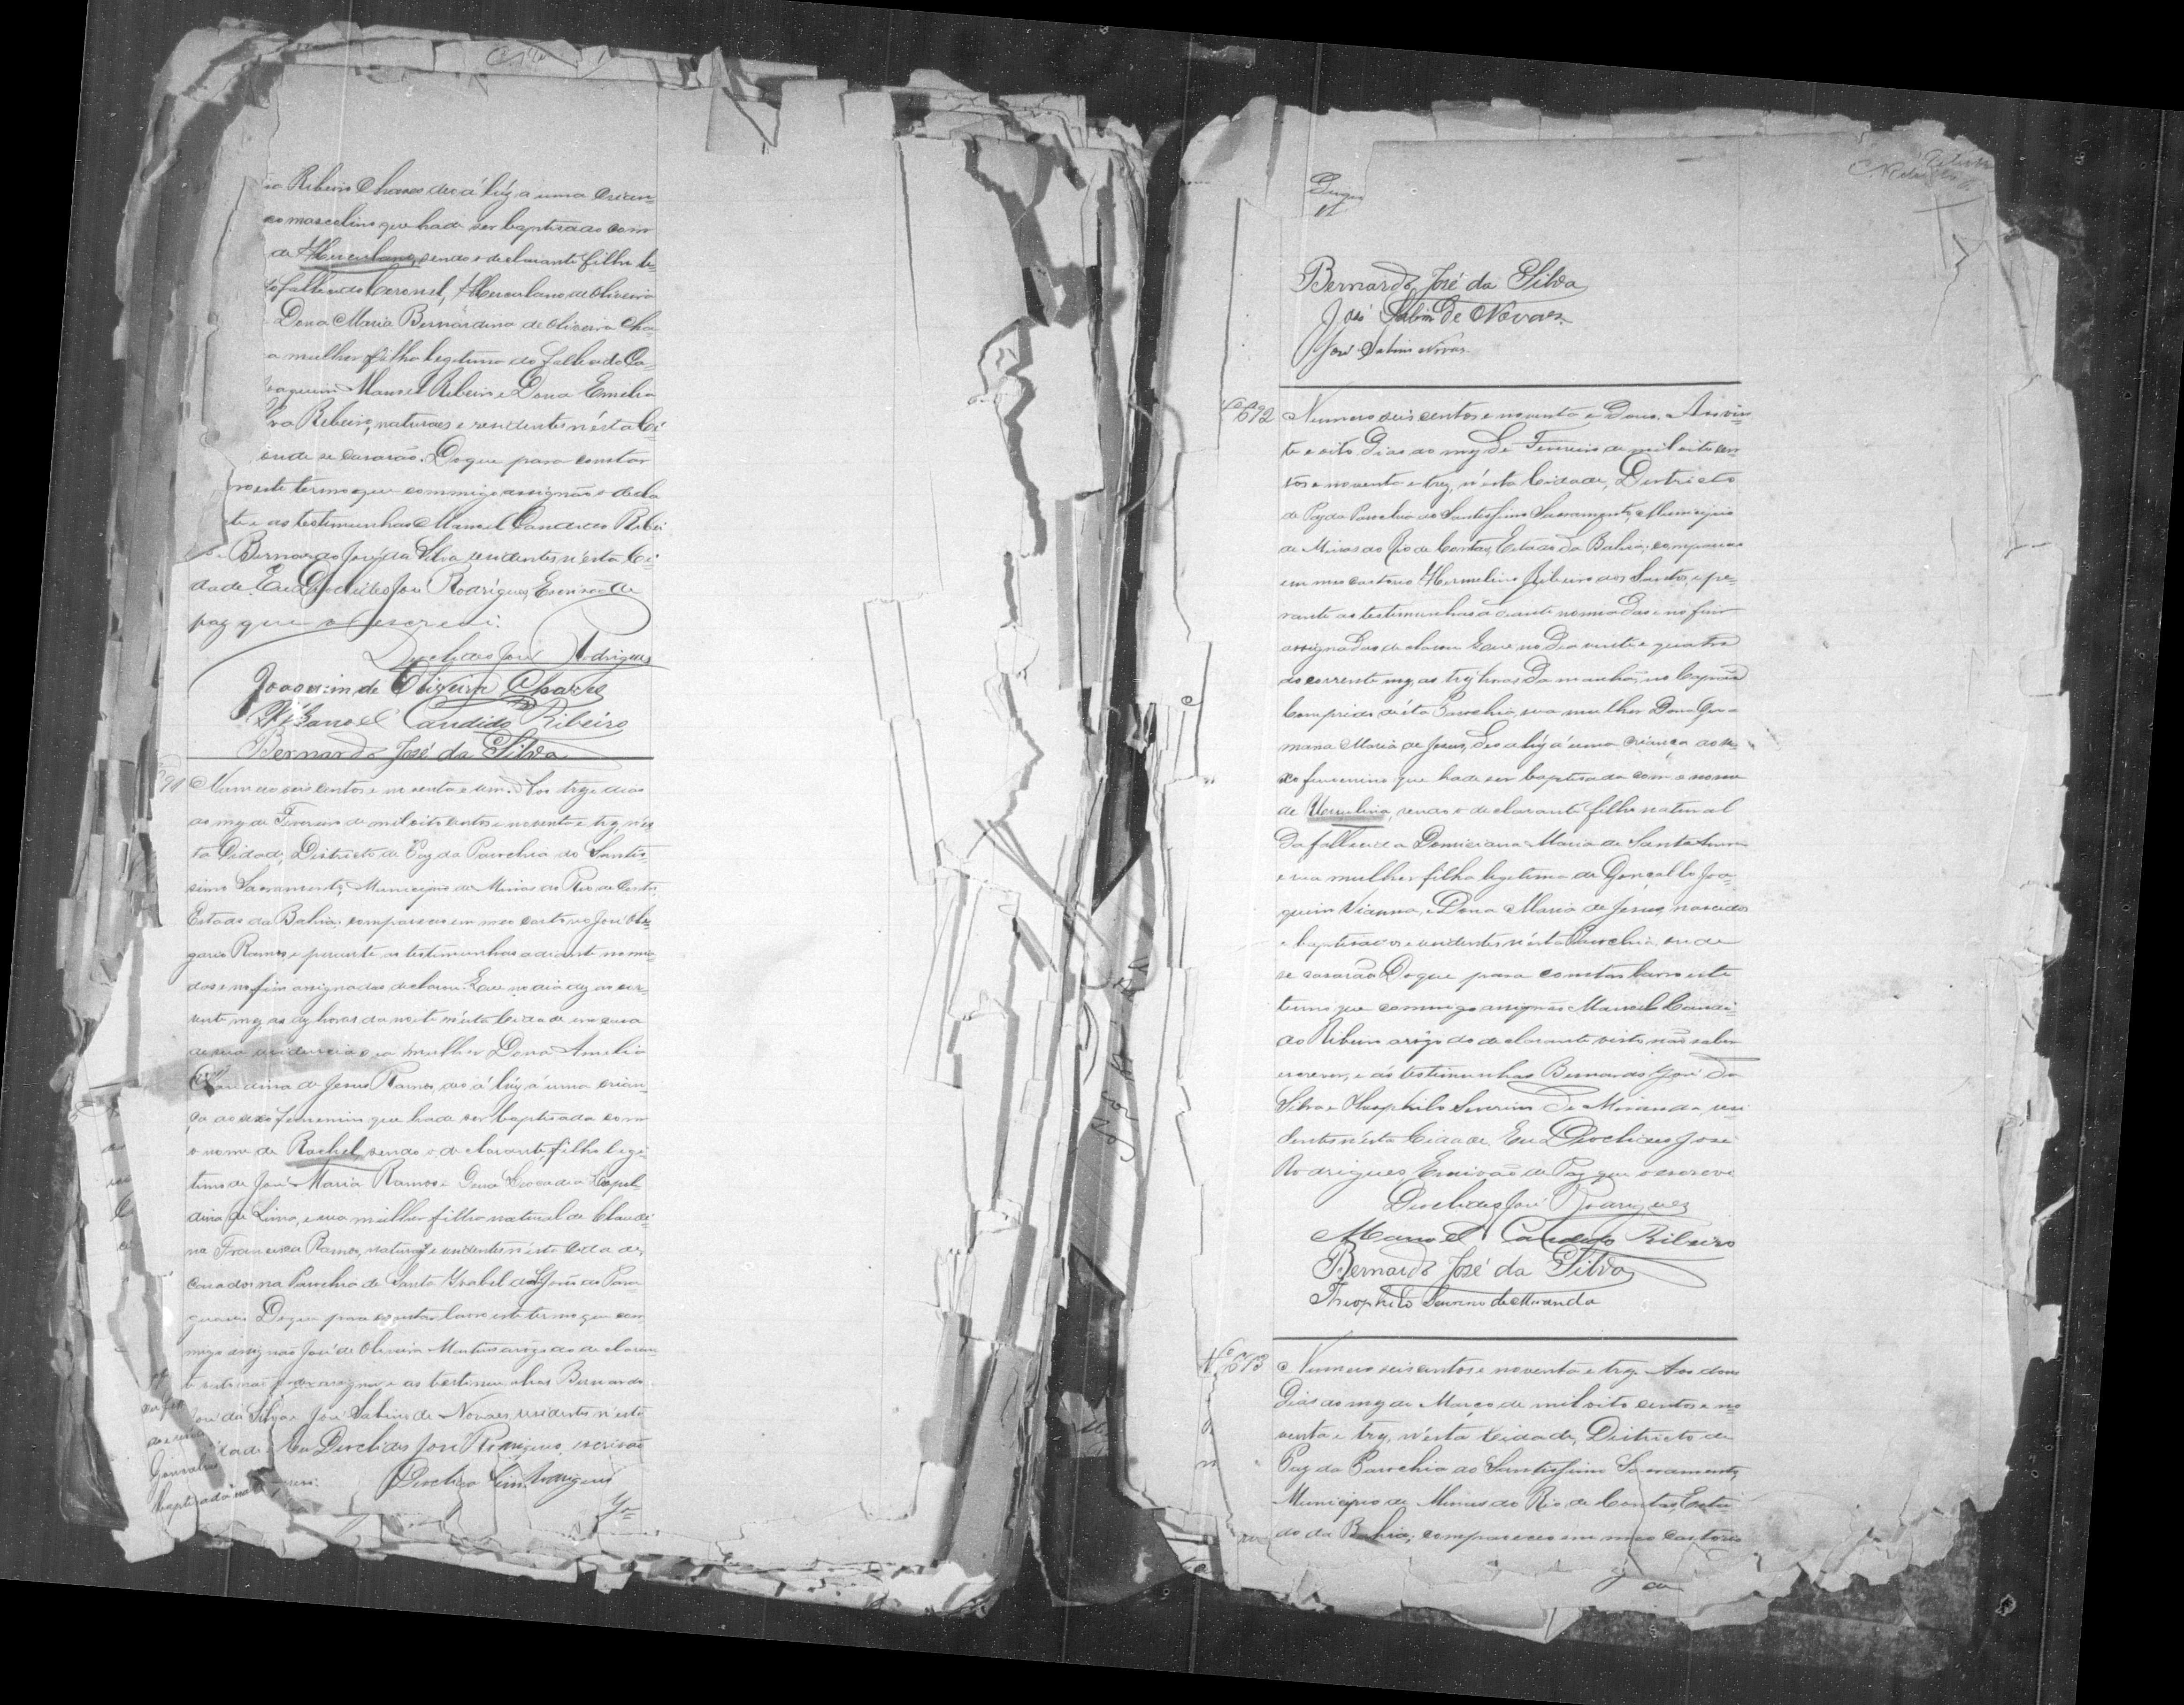 Ribeiro Chaves deo á lúz a uma crian-
xo masculino que hade ser baptisado com
de Herculano, sendo o declarante filho le-
fallecido Coronel, Herculano de Oliveira
Dona Maria Bernardina de Oliveira Cha-
a mulher filha legitima do fallecido Ca-
Joaquim Manoel Ribeiro e Dona Emilia
Ribeiro, naturaes e residentes n'esta Ci-
onde se casarão. Do que para constar
este termo que commigo assignão o decla
te e as testimunhas Manoel Candido Ribei
Bernardo José da Silva, residentes n'esta Ci-
dade. Eu Diocl​ides José Rodrigues, Escrivão de
paz que o escrevi.
Dioclides José Rodrigues
Joaquim de Oliveira Chaves
Manoel Candido Ribeiro
Bernardo José da Silva
91 Numero seis centos e noventa e um. Aos treze dias
do mez de Fevereiro de mil oito centos e noventa e trez, n'es
ta Cidade, Districto de Paz da Parochia do Santis-
simo Sacramento, Municipio de Minas do Rio de Contas,
Estado da Bahia, compareceo em meo cartorio José Ole-
gario Ramos, e perante as testimunhas adiante nomea-
das e no fim assignadas declarou: Que no dia dez do cor-
rente mez as dez horas da noite n'esta Cidade em casa
de sua residencia sua mulher Dona Amelia
de Jesus Ramos, deo á lúz á uma crian-
ça do sexo femenino que hade ser baptisada com
o nome de Rachel, sendo o declarante, filho legi-
timo de José Maria Ramos e Dona Leocadia
de Lima, e sua mulher filha natural de Claudi-
na Francisca Ramos, naturaes e residentes n'esta Cidade,
casados na Parochia de Santa Izabel de São João do Para-
guassú. Do que para constar lavro este termo que com-
migo assignão José de Oliveira Martins arogo do declaran-
te visto não poder assignar e as testimunhas Bernardo
José da Silva e José Sabino de Novaes, residentes n'esta
Cidade. Eu Dioclides José Rodrigues, escrivão
Dioclides José Rodrigues
Bernardo José da Silva
José Sabino de Novaes
José Sabino Novaes
692 Numero seis centos e noventa e Dous. Aos vin-
te e oito Dias do mez de Fevereiro de mil oito cen-
tos e noventa e trez, n'esta Cidade, Districto
de Paz da Parochia do Santissimo Sacramento, Municipio
de Minas do Rio de Contas, Estado da Bahia, compareceo
em meo cartorio Hermelino Ribeiro dos Santos, e pe-
rante as testimunhas adiante nomeadas e no fim
assignadas declarou: Que no Dia vinte e quatro
do corrente mez, as trez horas da manhã, no Capão
Comprido d'esta Parochia, sua mulher Dona Ger-
mana Maria de Jesus, Deo a lúz á uma criança do se-
xo femenino que hade ser baptisada com o nome
de Herculina, sendo o declarante filho natural
da fallecida Domiciana Maria de Santa Anna
e sua mulher filha legitima de Gonçallo Joa-
quim Vianna, e Dona Maria de Jesus, nascidos
e baptisados e residentes n'esta Parochia, onde
se casarão. Do que para constar lavro este
termo que commigo assignão Manoel Candi-
do Ribeiro arogo do declarante visto não saber
escrever, e as testimunhas Bernardo José da
Silva e Theophilo Severino de Miranda, resi-
dentes n'esta Cidade. Eu Dioclides José
Rodrigues, Escrivão de Paz, que o escrevi
Dioclides José Rodrigues
Manoel Candido Ribeiro
Bernardo José da Silva
Theophilo Severino de Miranda
Nº 693 Numero seis centos e noventa e trez. Aos dous
Dias do mez de Março de mil oito centos e no
venta e trez, n'esta Cidade, Districto de
Paz da Parochia do Santissimo Sacramento,
Municipio de Minas do Rio de Contas, Esta-
do da Bahia, compareceo em meo cartorio